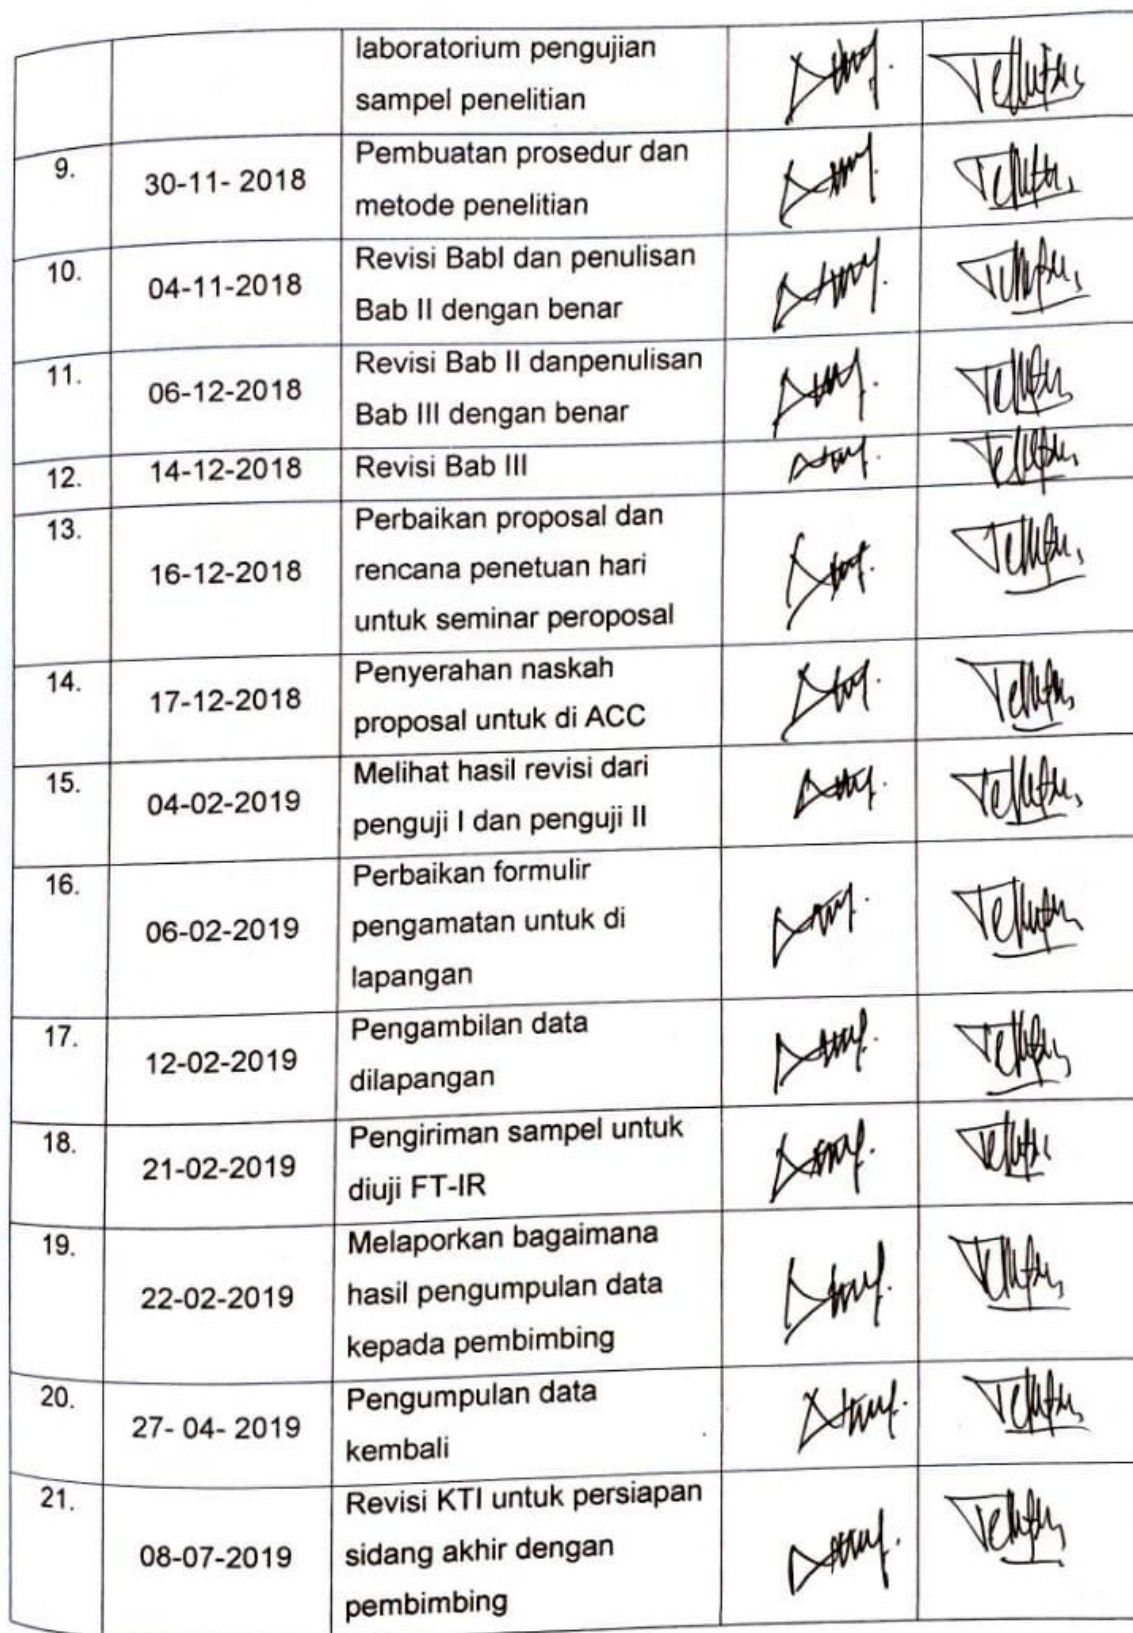 laboratorium pengujian
sampel penelitian
9.
30-11- 2018
Pembuatan prosedur dan
metode penelitian
10.
04-11-2018
Revisi BabI dan penulisan
Bab II dengan benar
11.
06-12-2018
Revisi Bab II danpenulisan
Bab III dengan benar
12.
14-12-2018
Revisi Bab III
13.
16-12-2018
Perbaikan proposal dan
rencana penetuan hari
untuk seminar peroposal
14.
17-12-2018
Penyerahan naskah
proposal untuk di ACC
15.
04-02-2019
Melihat hasil revisi dari
penguji I dan penguji II
16.
06-02-2019
Perbaikan formulir
pengamatan untuk di
lapangan
17.
12-02-2019
Pengambilan data
dilapangan
18.
21-02-2019
Pengiriman sampel untuk
diuji FT-IR
19.
22-02-2019
Melaporkan bagaimana
hasil pengumpulan data
kepada pembimbing
20.
27- 04- 2019
Pengumpulan data
kembali
21.
08-07-2019
Revisi KTI untuk persiapan
sidang akhir dengan
pembimbing